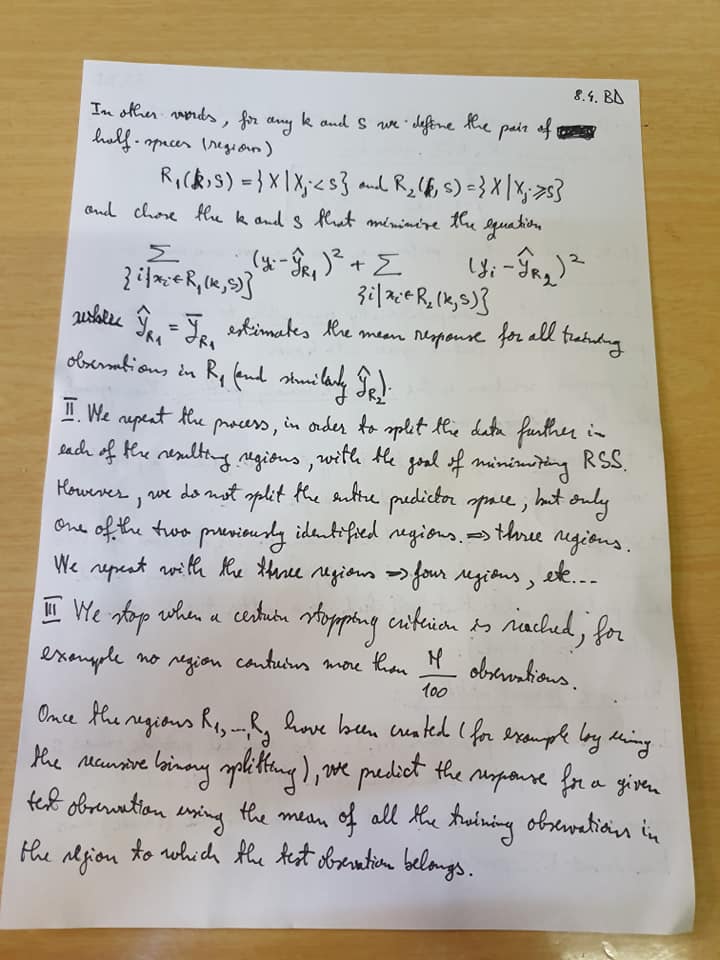 8.4. BD
In other words, for any k and s we define the pair of
half-spaces (regions)
R₁(k,s) = {X|Xⱼ<s} and R₂(k,s) = {X|Xⱼ⩾s}
and chose the k and s that minimize the equation
∑ (yᵢ-ŷ_R₁)² + ∑ (yᵢ-ŷ_R₂)²
{i|xᵢ∈R₁(k,s)} {i|xᵢ∈R₂(k,s)}
where ŷ_R₁ = ȳ_R₁ estimates the mean response for all training
observations in R₁ (and similarly ŷ_R₂).
II. We repeat the process, in order to split the data further in
each of the resulting regions, with the goal of minimizing RSS.
However, we do not split the entire predictor space, but only
one of the two previously identified regions. ⇒ three regions.
We repeat with the three regions ⇒ four regions, etc...
III We stop when a certain stopping criterion is reached, for
example no region contains more than N/100 observations.
Once the regions R₁, ..., R_J have been created (for example by using
the recursive binary splitting), we predict the response for a given
test observation using the mean of all the training observations in
the region to which the test observation belongs.